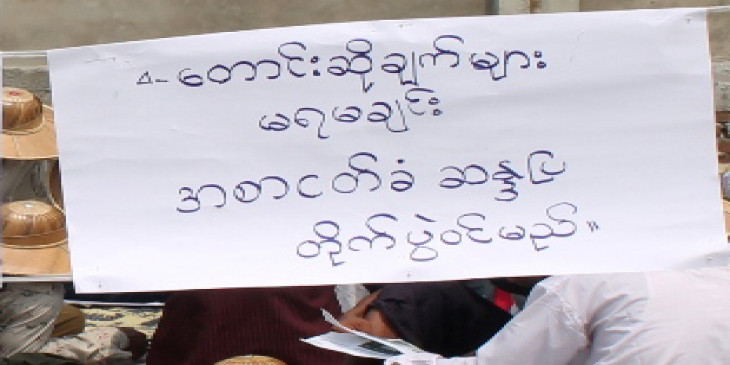 ၎-တောင်းဆိုချက်များ
မရမချင်း
အစာငတ်ခံ ဆန္ဒပြ
တိုက်ပွဲဝင်မည်။